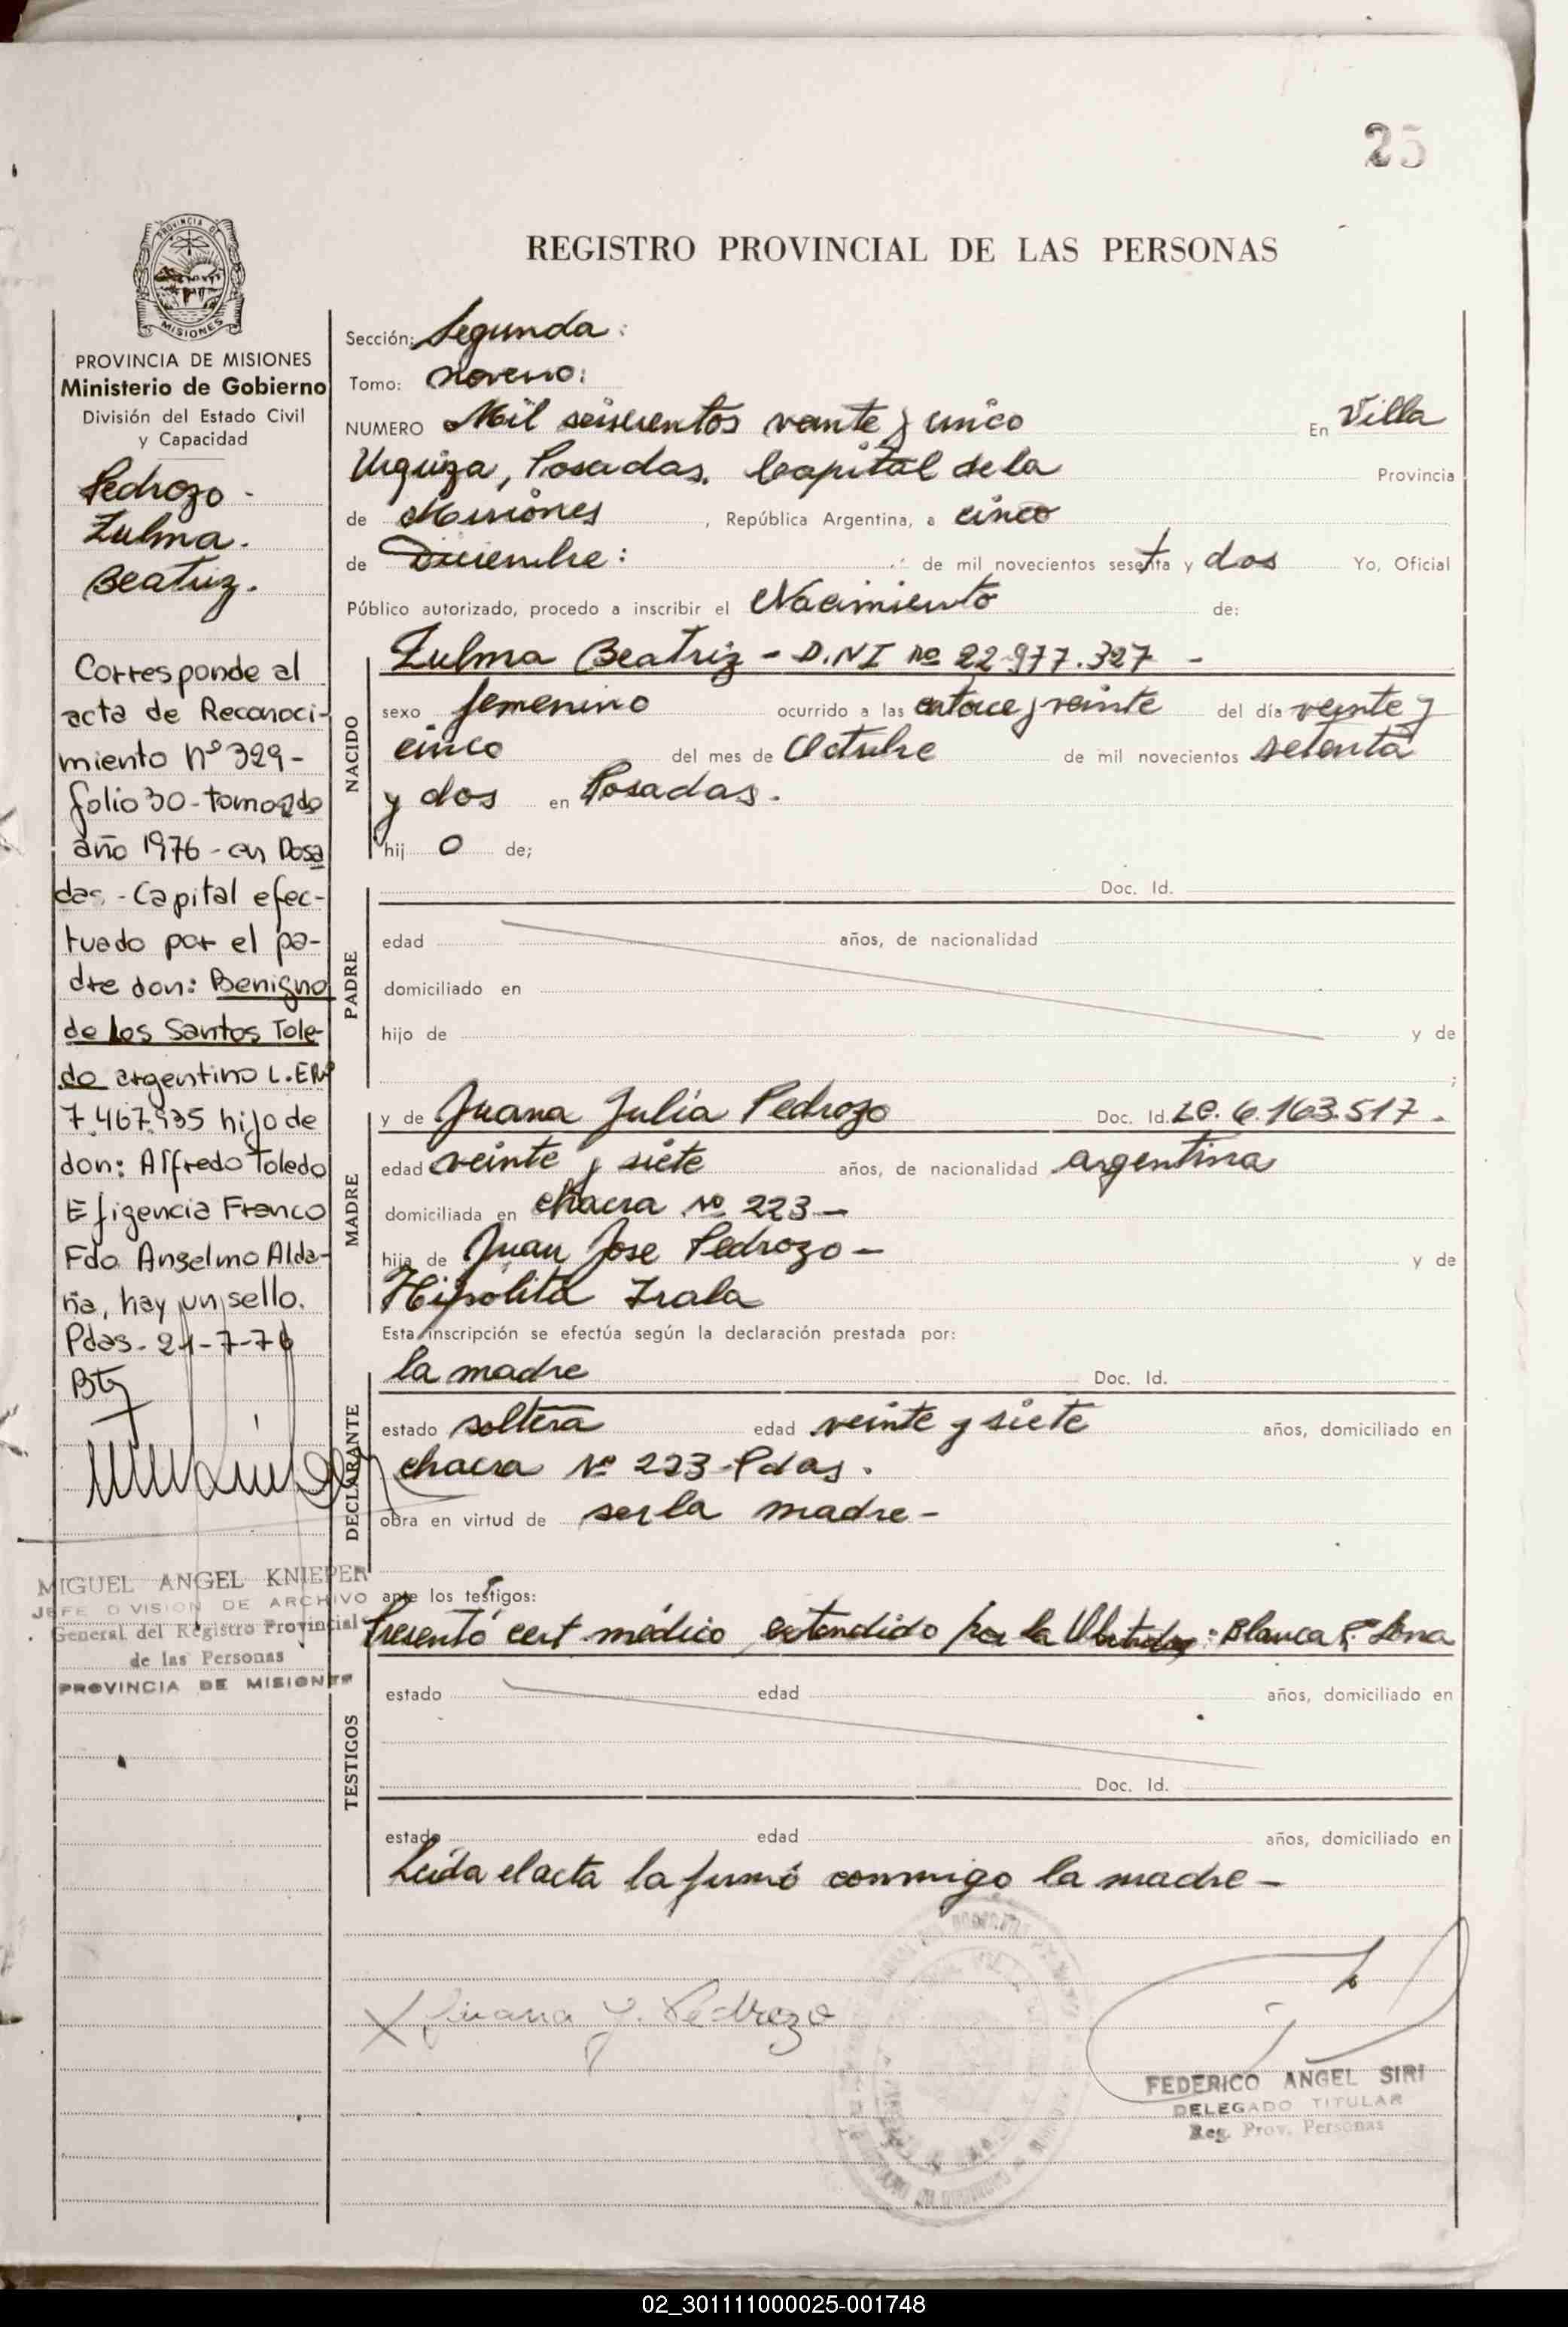 25
REGISTRO PROVINCIAL DE LAS PERSONAS
PROVINCIA DE
MISIONES
PROVINCIA DE MISIONES
Ministerio de Gobierno
División del Estado Civil
y Capacidad
Pedrozo -
Zulma.
Beatriz.
Corresponde al
acta de Reconoci-
miento nº 329-
folio 30 - tomo 2do
año 1976 - en Posa
das - Capital efec-
tuado por el pa-
dre don: Benigno
de los Santos Tole-
do argentino L.E Nº
7.467.935 hijo de
don: Alfredo Toledo
Efigencia Franco
Fdo Anselmo Alda-
ña, hay un sello.
Pdas - 21-7-76
MIGUEL ANGEL KNIEPER
JEFE DIVISION DE ARCHIVO
General del Registro Provincial
de las Personas
PROVINCIA DE MISIONES
Sección: Segunda:
Tomo: noveno:
NUMERO Mil seiscientos veinte y cinco En Villa
Urquiza, Posadas. Capital de la Provincia
de Misiones, República Argentina, a cinco
de Diciembre: de mil novecientos setenta y dos Yo, Oficial
Público autorizado, procedo a inscribir el Nacimiento de:
NACIDO
Zulma Beatriz - D.N.I nº 22.977.327 -
sexo femenino ocurrido a las catorce y veinte del día veinte y
cinco del mes de Octubre de mil novecientos setenta
y dos en Posadas.
hij o de;
PADRE
Doc. Id.
edad años, de nacionalidad
domiciliado en
hijo de y de
;
MADRE
y de Juana Julia Pedrozo Doc. Id. LC. 6.163.517.
edad veinte y siete años, de nacionalidad argentina
domiciliada en chacra Nº 223-
hija de Juan Jose Pedrozo - y de
Hipólita Irala
Esta inscripción se efectúa según la declaración prestada por:
DECLARANTE
la madre Doc. Id.
estado soltera edad veinte y siete años, domiciliado en
chacra Nº 223 - Pdas.
obra en virtud de ser la madre-
ante los testigos:
TESTIGOS
Presentó cert médico extendido por la : Blanca
estado edad años, domiciliado en
Doc. Id.
estado edad años, domiciliado en
Leída el acta la firmó conmigo la madre-
Juana J. Pedrozo
FEDERICO ANGEL SIRI
DELEGADO TITULAR
Reg. Prov. Personas
02_301111000025-001748